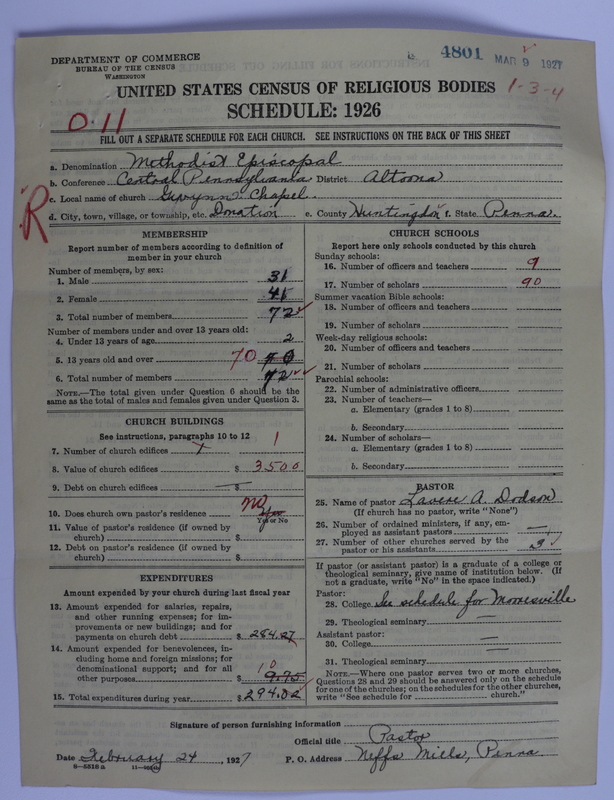 4801 MAR 9 1927
DEPARTMENT OF COMMERCE
BUREAU OF THE CENSUS
WASHINGTON
UNITED STATES CENSUS OF RELIGIOUS BODIES
1-3-4
SCHEDULE: 1926
0 11
FILL OUT A SEPARATE SCHEDULE FOR EACH CHURCH. SEE INSTRUCTIONS ON THE BACK OF THIS SHEET
a. Denomination Methodist Episcopal
b. Conference Central Pennsylvania District Altoona
R
c. Local name of church Gwynn Chapel
d. City, town, village, or township, etc. Donation e. County Huntingdon f. State Penna.
MEMBERSHIP
Report number of members according to definition of
member in your church
Number of members, by sex:
1. Male 31
2. Female 41
3. Total number of members 72
Number of members under and over 13 years old:
4. Under 13 years of age 2
5. 13 years old and over 70 70
6. Total number of members 72
NOTE.—The total given under Question 6 should be
same as the total of males and females given under Question 3.
CHURCH BUILDINGS
See instructions, paragraphs 10 to 12
7. Number of church edifices 1
8. Value of church edifices $ 3500
9. Debt on church edifices $ —
10. Does church own pastor's residence No
Yes or No
11. Value of pastor's residence (if owned by
church) $
12. Debt on pastor's residence (if owned by
church) $
EXPENDITURES
Amount expended by your church during last fiscal year
13. Amount expended for salaries, repairs,
and other running expenses; for im-
provements or new buildings; and for
payments on church debt $ 284.27
14. Amount expended for benevolences, in-
cluding home and foreign missions; for
denominational support; and for all
other purposes 10 9.75
15. Total expenditures during year $ 294.02
CHURCH SCHOOLS
Report here only schools conducted by this church
Sunday schools:
16. Number of officers and teachers 9
17. Number of scholars 90
Summer vacation Bible schools:
18. Number of officers and teachers
19. Number of scholars
Week-day religious schools:
20. Number of officers and teachers
21. Number of scholars
Parochial schools:
22. Number of administrative officers
23. Number of teachers—
a. Elementary (grades 1 to 8)
b. Secondary
24. Number of scholars—
a. Elementary (grades 1 to 8)
b. Secondary
PASTOR
25. Name of pastor Lavere A. Dodson
(If church has no pastor, write "None")
26. Number of ordained ministers, if any, em-
ployed as assistant pastors —
27. Number of other churches served by the
pastor or his assistants 3
If pastor (or assistant pastor) is a graduate of a college or
theological seminary, give name of institution below. (If
not a graduate, write "No" in the space indicated.)
Pastor:
28. College See schedule for Mooresville
29. Theological seminary —
Assistant pastor:
30. College —
31. Theological seminary —
NOTE.—Where one pastor serves two or more churches,
Questions 28 and 29 should be answered only on the schedule
for one of the churches; on the schedules for the other churches,
write "See schedule for church."
Signature of person furnishing information
Official title Pastor
Date February 24, 1927 P. O. Address Neffs Mills, Penna.
8-5518 a